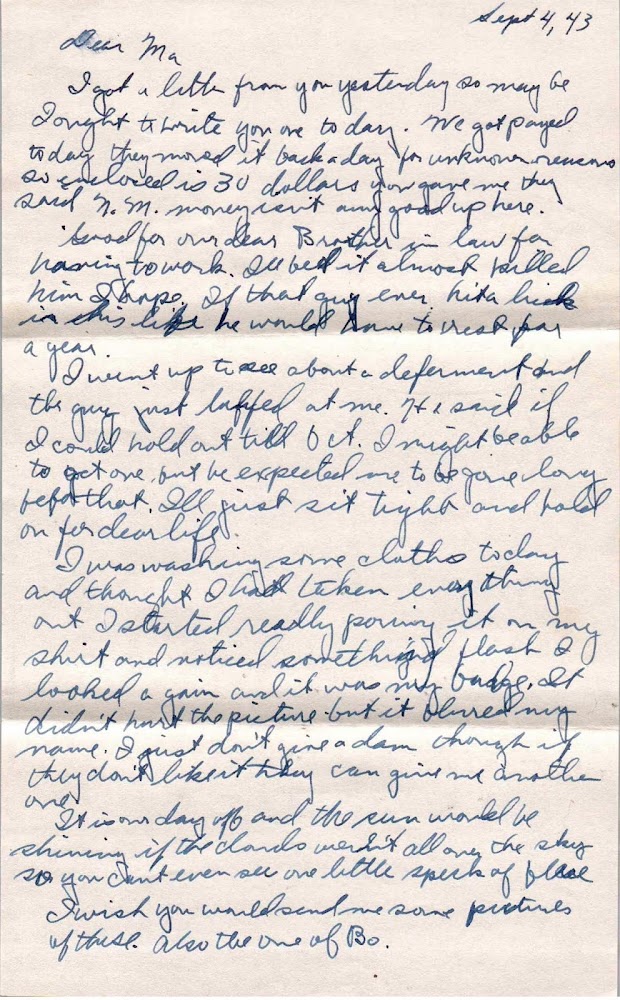 Sept 4, 43
Dear Ma
I got a letter from you yesterday so may be
I ought to write you one today. We got payed
today they moved it back a day for unknown reasons
so enclosed is 30 dollars you gave me they
said N. M. money isn't any good up here.
Good for our dear Brother in law for
having to work. I'll bet it almost killed
him I hope. If that guy ever hit a lick
in this life he would have to rest for
a year.
I went up to see about a deferment and
the guy just laffed at me. He said if
I could hold out till Oct. I might be able
to get one but he expected me to be gone long
before that. I'll just sit tight and hold
on for dear life.
I was washing some cloths today
and thought I had taken every thing
out I started readly poring it on my
shirt and noticed something flash I
looked a gain and it was my badge. It
didn't hurt the picture but it blured my
name. I just don't give a dam though if
they don't like it they can give me another
one.
It is our day off and the sun would be
shining if the clouds weren't all over the sky
so you can't even see one little speck of blue
I wish you would send me some pictures
of these. Also the one of Bo.